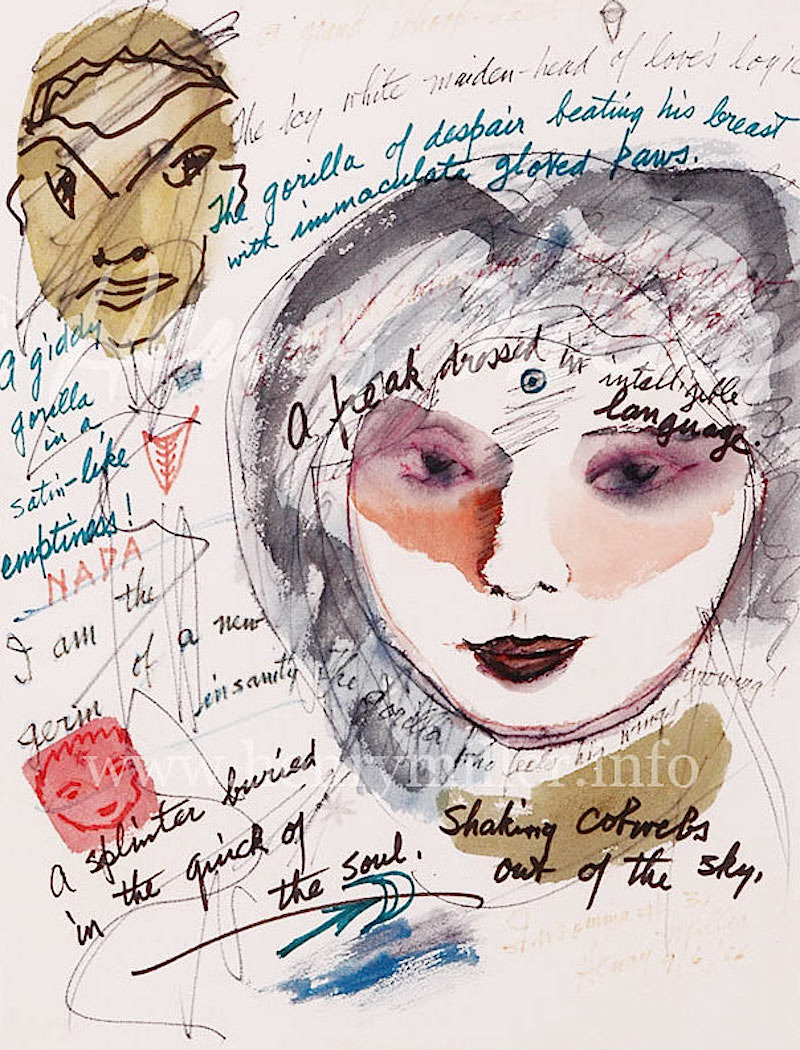 The icy white maiden-head of love's logic
The gorilla of despair beating his breast
with immaculate gloved paws.
A freak dressed in intelligible
language.
A giddy
gorilla
in a
satin-like
emptiness!
NADA
I am the
germ of a new
insanity
the gorilla
who feels his wings
growing!
www.henrymiller.info
A splinter buried
in the quick of
the soul.
Shaking cobwebs
out of the sky.
Henry